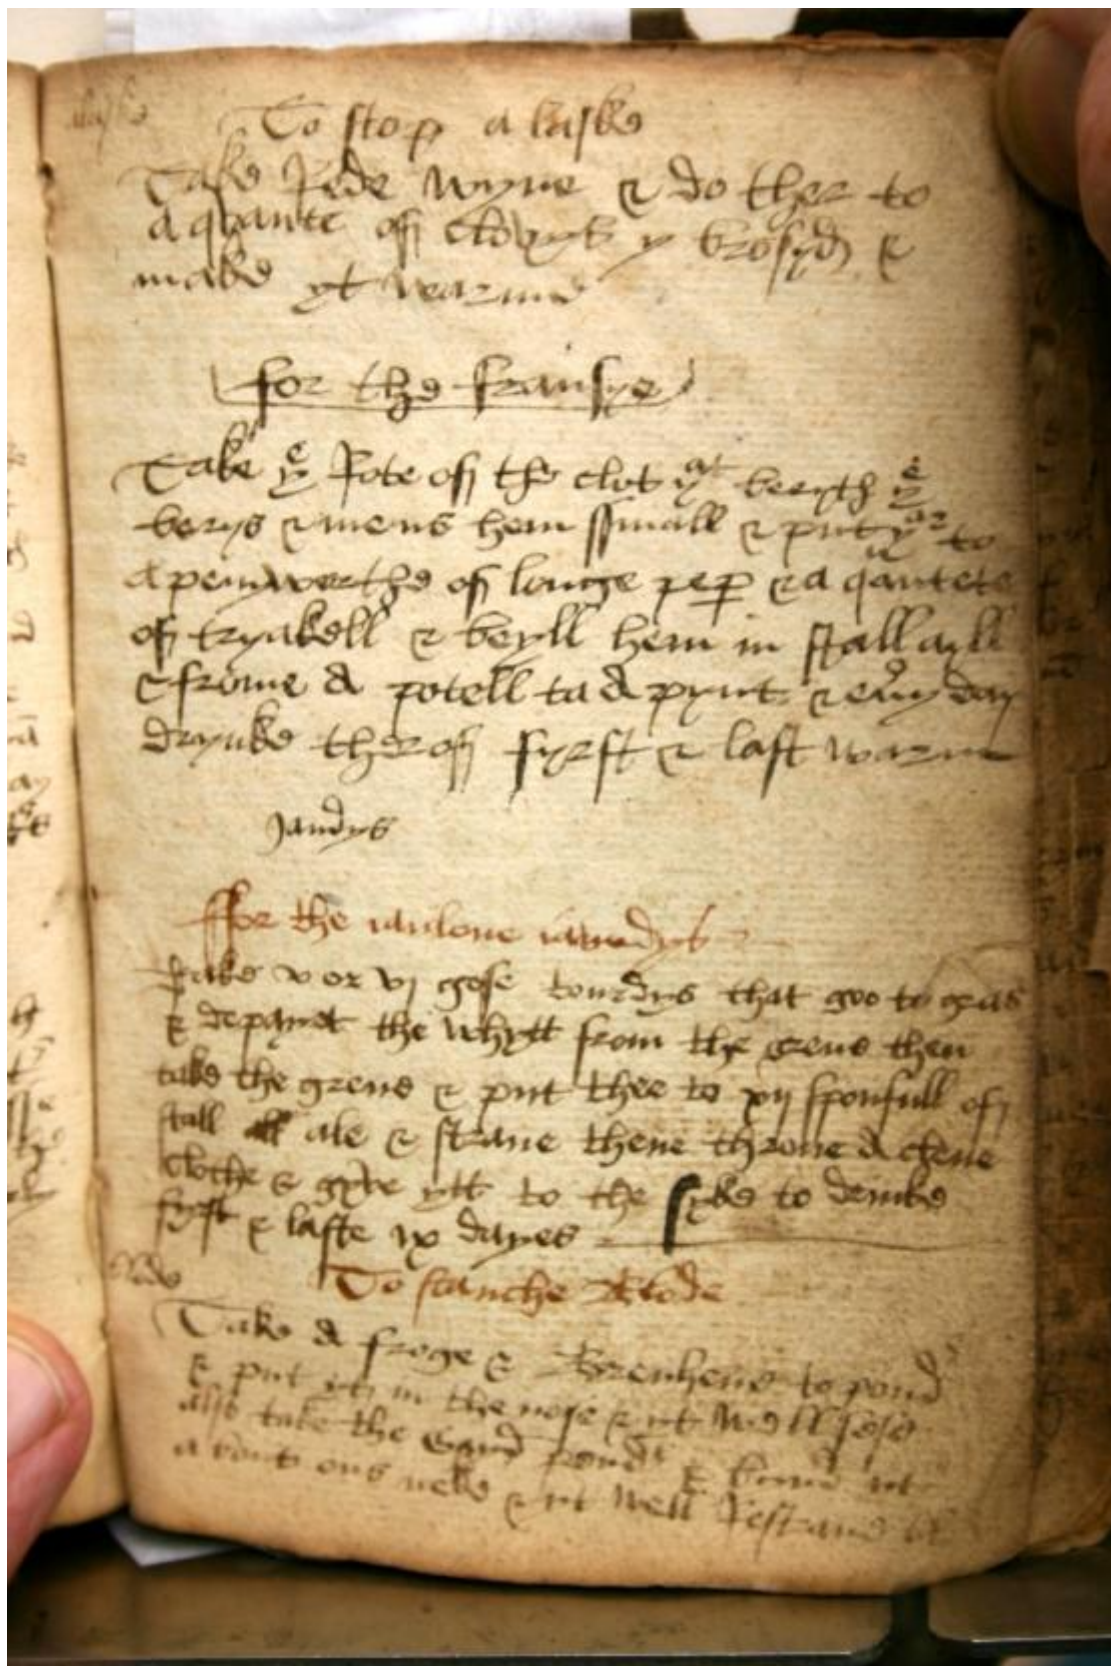 laske
To stop a laske
Take Rede wyne & do ther to
a qwante off clowys y brosyd &
make yt warme
for the fransye
Take yͤ Rote off the clot yᵗ beryth yͤ
berys & mens hem small & put yᵉʳ to
a penyworthe off longe pep & a qantete
off tryakell & boyll hem in stall ayll
& frome a potell to a pynt & eu̔y day
drynke ther off fyrst & last warme
Jandys
ffor the iaulone iaundys
Take v or vj gose tourdys that goo to gras
& depart the whytt from the grene then
take the grene & put ther to xij sponfull off
stall ale & strane thene throue a clene
clothe & gyve ytt to the syke to drinke
fyrst & laste ix dayes
To stanche Blode
Take a froge & Brenhene to poud
& put yt in the nose & yt well sese
also take the sam poudʳ & bynd yt
a bout ons neke & yt well Restrane